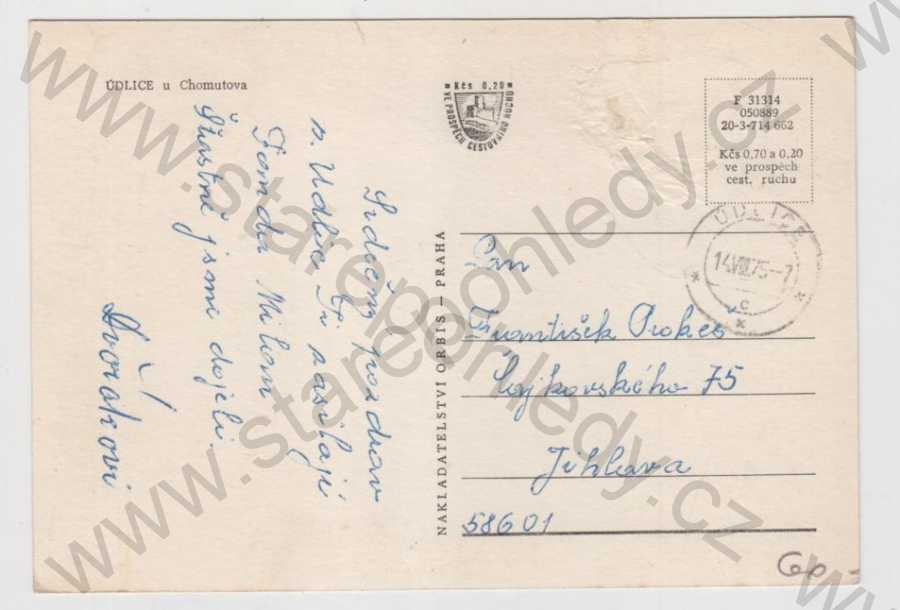 ÚDLICE u Chomutova
Kčs 0,20
VE PROSPĚCH CESTOVNÍHO RUCHU
F 31314
050889
20-3-714 662
Kčs 0,70 a 0,20
ve prospěch
cest. ruchu
ÚDLICE
14.VIII.75-7
c
Srdečný pozdrav
z Údlic Vám zasílají
Jarmila Milan
Šťastně jsme dojeli.
Dvořákovi
NAKLADATELSTVÍ ORBIS — PRAHA
Pan
František Prokeš
Čajkovského 75
Jihlava
58601
60-
www.starepohledy.cz
www.starepohledy.cz
www.starepohledy.cz